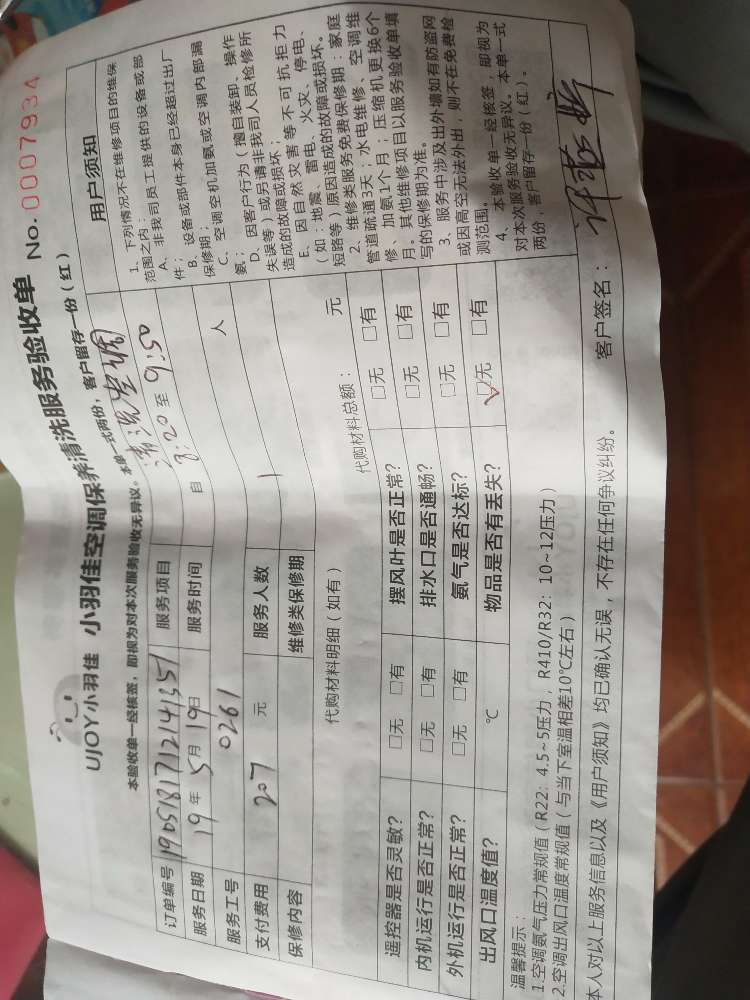 UJOY小羽佳 小羽佳空调保养清洗服务验收单 No. 0007934
本验收单一经核签，即视为对本次服务验收无异议。本单一式两份，客户留存一份（红）
订单编号 1905181712141351 服务项目 清洗空调
服务日期 19年5月19日 服务时间 自 8:20 至 9:50
服务工号 0261
支付费用 207 元 服务人数 1 人
保修内容 维修类保修期
代购材料明细（如有） 代购材料总额： 元
遥控器是否灵敏？ □无 □有 摆风叶是否正常？ □无 □有
内机运行是否正常？ □无 □有 排水口是否通畅？ □无 □有
外机运行是否正常？ □无 □有 氨气是否达标？ □无 □有
出风口温度值？ ℃ 物品是否有丢失？ ☑无 □有
温馨提示：
1.空调氨气压力常规值（R22: 4.5~5压力，R410/R32: 10~12压力）
2.空调出风口温度常规值（与当下室温相差10℃左右）
本人对以上服务信息以及《用户须知》均已确认无误，不存在任何争议纠纷。 客户签名：
用户须知
1、下列情况不在维修项目的维保
范围之内：
A、非我司员工提供的设备或部
件；
B、设备或部件本身已经超过出厂
保修期；
C、空调空机加氨或空调内部漏
氨；
D、因客户行为（擅自装卸、操作
失误等）或另请非我司人员检修所
造成的故障或损坏；
E、因自然灾害等不可抗拒力
（如：地震、雷电、火灾、停电、
短路等）原因造成的故障或损坏。
2、维修类服务免费保修期：家庭
管道疏通3天；水电维修、空调维
修、加氨1个月；压缩机更换6个
月。其他维修项目以服务验收单填
写的保修期为准。
3、服务中涉及出外墙如有防盗网
或因高空无法外出，则不在免费检
测范围。
4、本验收单一经核签，即视为
对本次服务验收无异议。本单一式
两份，客户留存一份（红）。